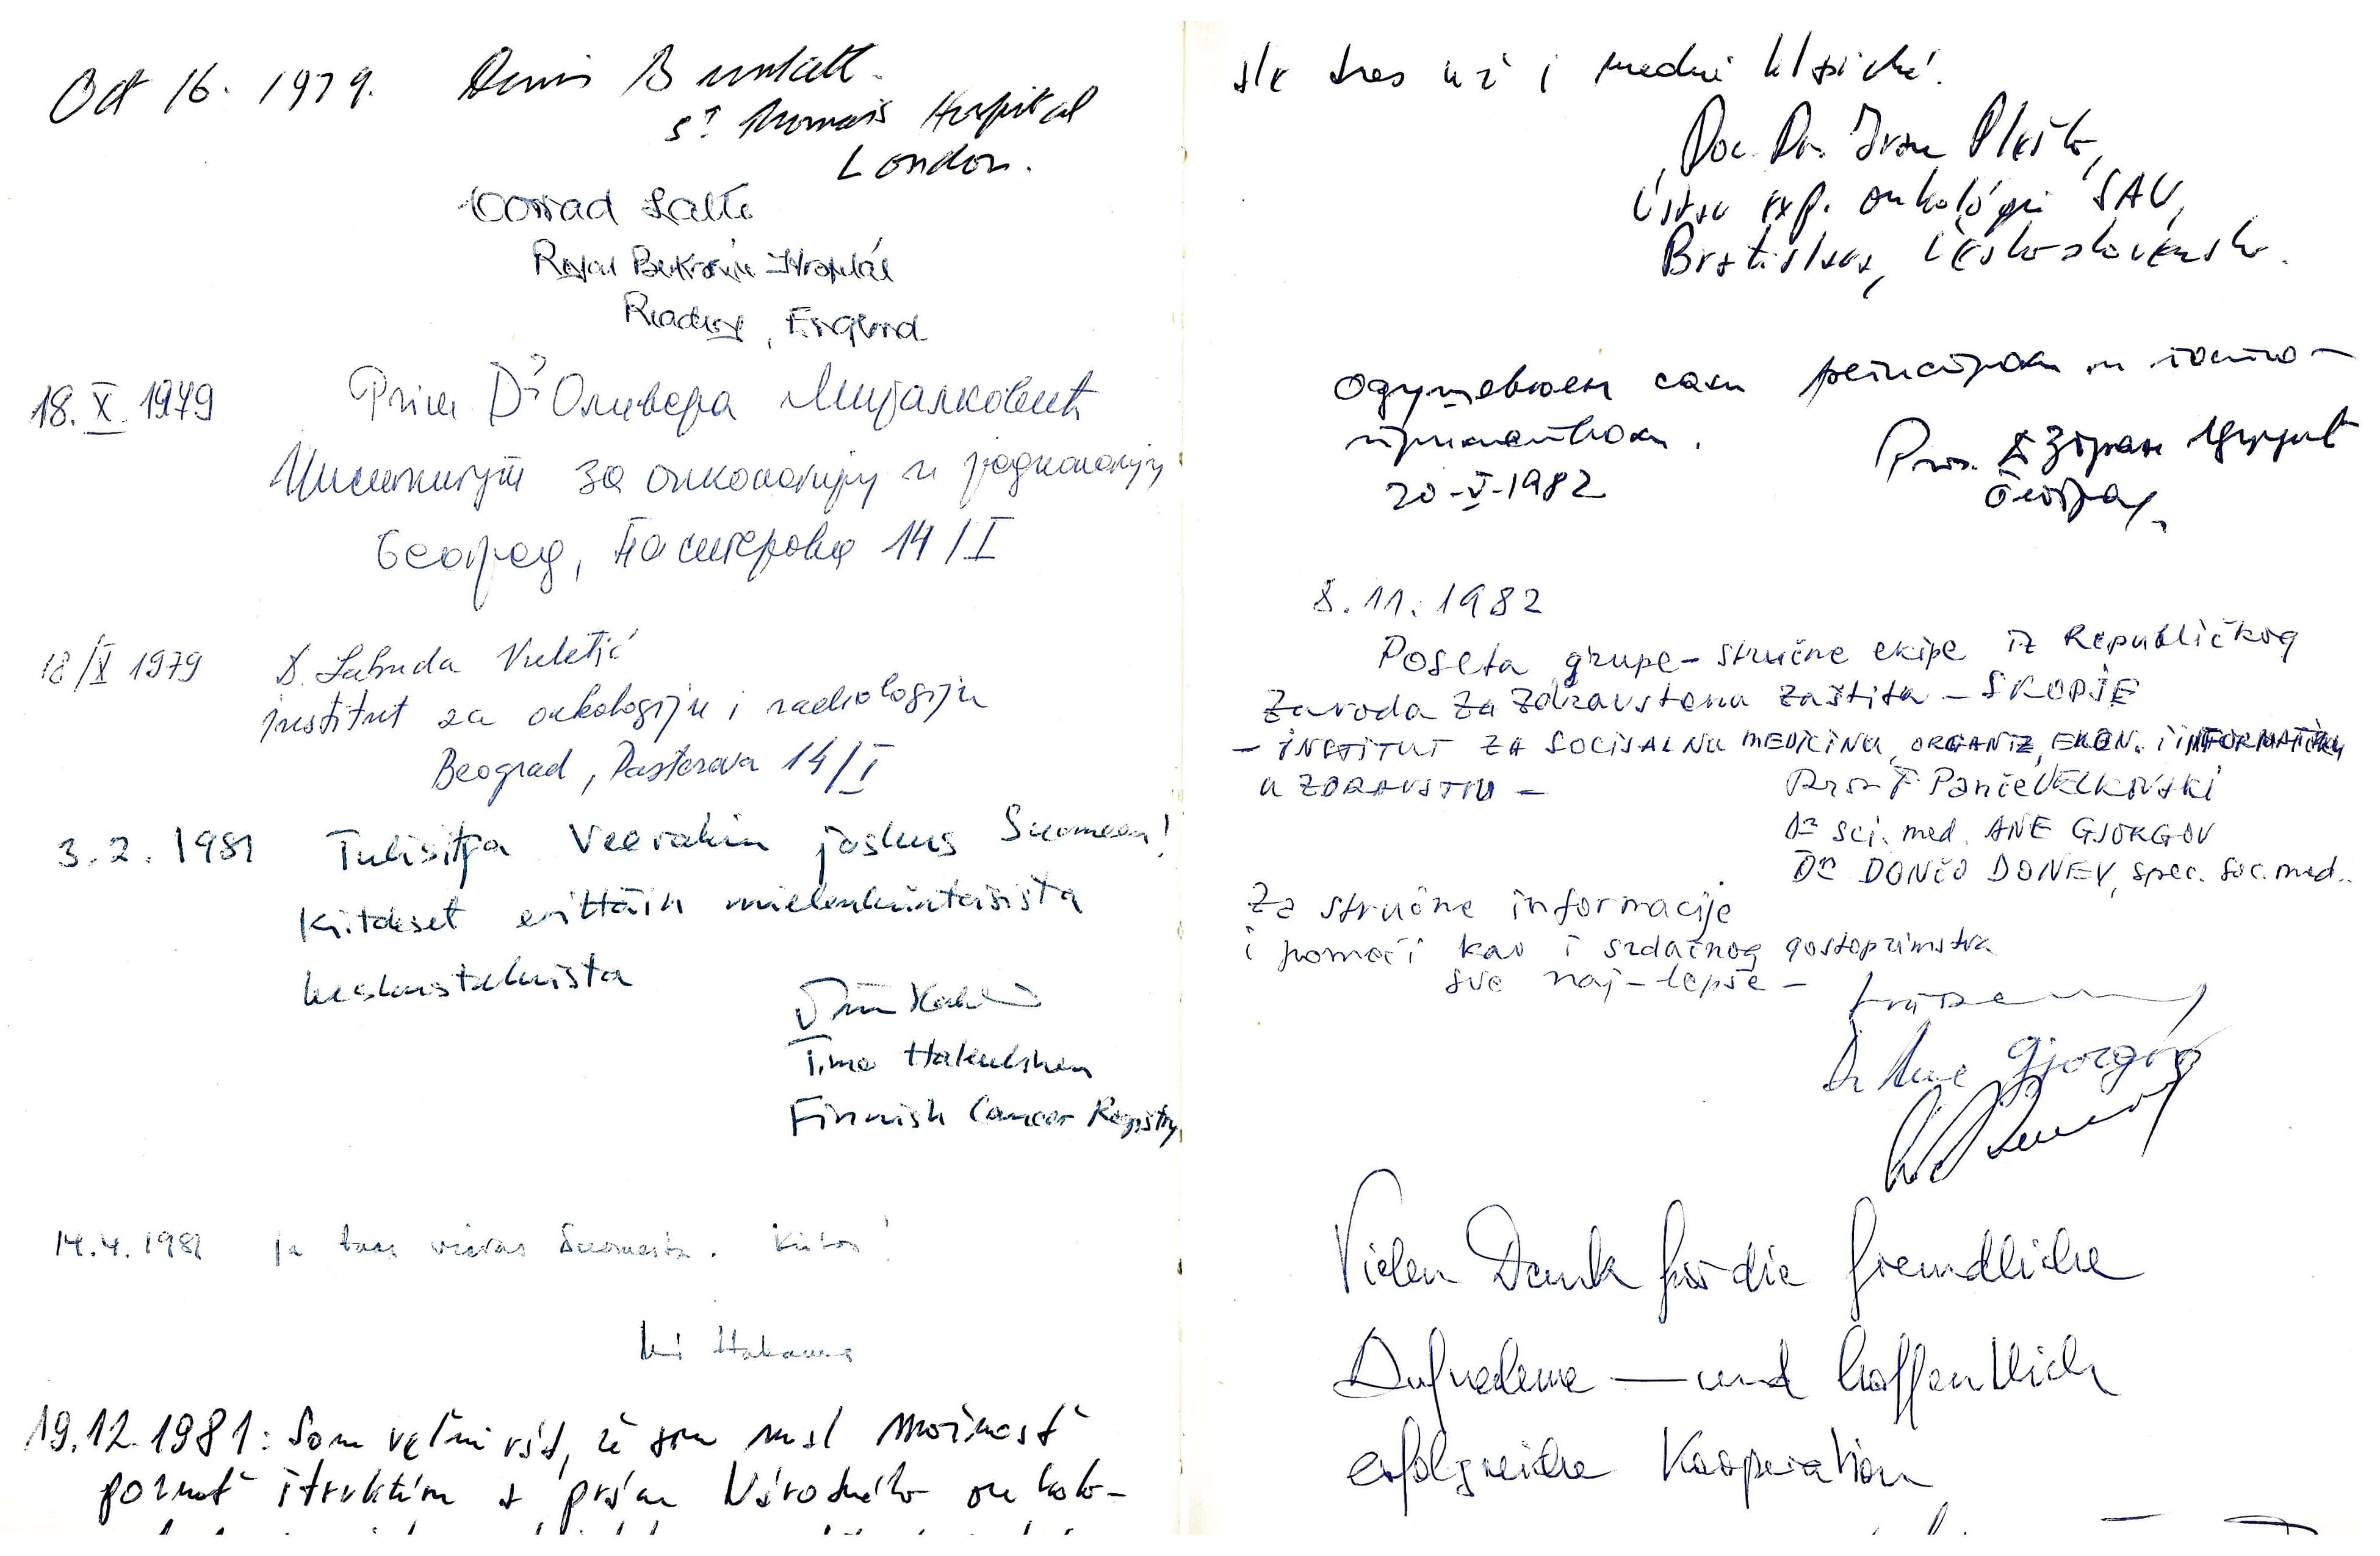 Oct 16. 1979. Denis Burkitt.
St Thomas's Hospital
London.
Conrad Latto
Royal Berkshire Hospital
Reading, England
18. X. 1979 Prim Dr Оливера Мијалковић
Институт за онкологију и радиологију
Београд, Пастерова 14/I
18/X 1979 Dr. Labuda Vuletić
institut za onkologiju i radiologiju
Beograd, Pasterova 14/I
3.2.1981 Tulisitpa Veerakin joskus Suomeen!
Kiitokset erittäin mielenkiintoisista
keskusteluista
Timo Hakulinen
Finnish Cancer Registry
14.4.1981 ja taas vieras Suomesta. Kiitos!
Hakama
19.12.1981: Som veľmi rád, že som mal možnosť
poznať štruktúru a prácu Národného onkolo-
ale dnes už i medzi klasické.
Doc. Dr. Ivan Pleško,
Ústav exp. onkológie SAV,
Bratislava, Československo.
Одушевљен сам и
20-V-1982
Београд.
8.11.1982
Poseta grupe-stručne ekipe iz Republičkog
Zavoda za Zdravstenu zaštitu - SKOPJE
- INSTITUT ZA SOCIJALNU MEDICINU, ORGANIZ, EKON. i INFORMATIKU
U ZDRAVSTVU -
Panče VELKOVSKI
Dr sci. med. ANE GJORGOV
Dr DONČO DONEV, spec. soc. med..
Za stručne informacije
i pomoći kao i srdačnog gostoprimstva
sve naj-lepše -
Dr Ane Gjorgov
Vielen Dank für die freundliche
Aufnahme — und hoffentlich
erfolgreiche Kooperation